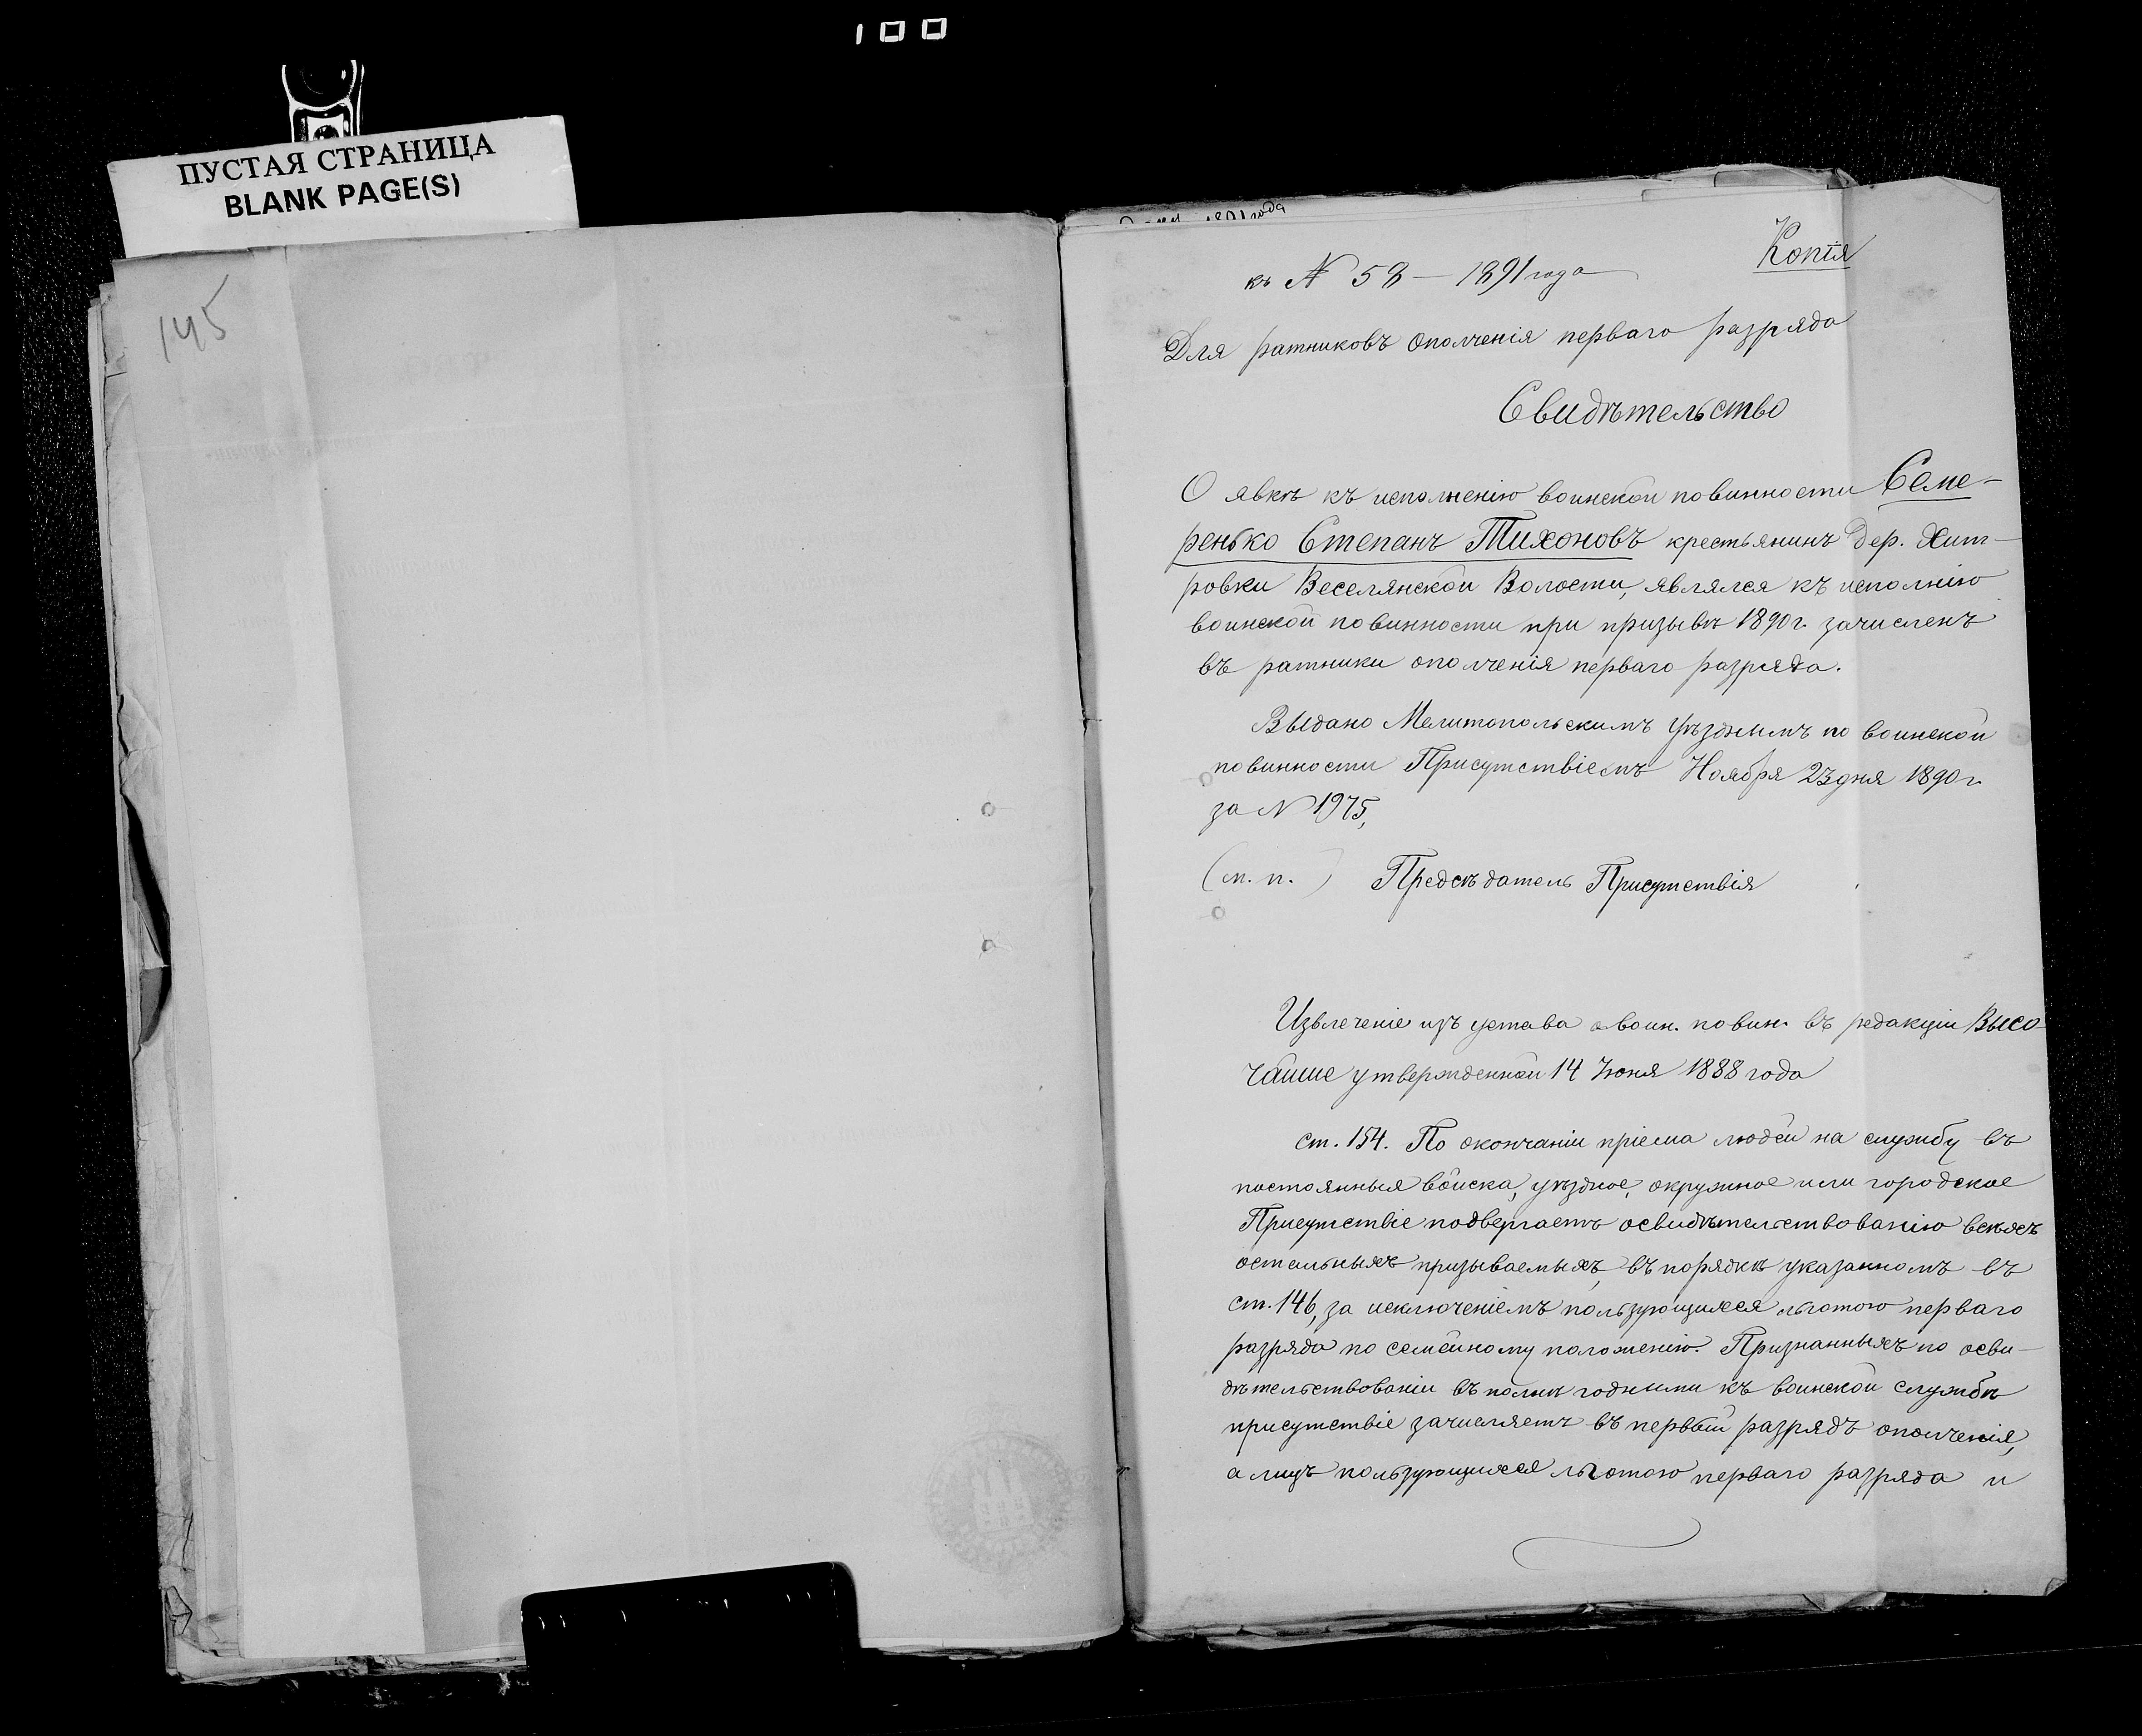 100
ПУСТАЯ СТРАНИЦА
BLANK PAGE(S)
145
1891 года
Копія
къ № 58 – 1891 года
Для ратниковъ ополченія перваго разряда
Свидѣтельство
О явкѣ къ исполненію воинской повинности Семе-
ренько Степанъ Тихоновъ крестьянинъ дер. Хит-
ровки Веселянской Волости, являлся къ исполнію
воинской повинности при призывѣ 1890 г. зачисленъ
въ ратники ополченія перваго разряда.
Выдано Мелитопольскимъ Уѣзднымъ по воинской
повинности Присутствіемъ Ноября 23 дня 1890 г.
за № 1975,
(м. п.) Предсѣдатель Присутствія
Извлеченіе изъ устава о воин. повин. въ редакціи Высо-
чайше утвержденной 14 Іюня 1888 года
ст. 154. По окончаніи пріема людей на службу въ
постоянныя войска, уѣздное, окружное или городское
Присутствіе подвергаетъ освидѣтельствованію всѣхъ
остальныхъ призываемыхъ, въ порядкѣ указанномъ въ
ст. 146, за исключеніемъ пользующихся льготою перваго
разряда по семейному положенію. Признанныхъ по осви-
дѣтельствованіи въ полнѣ годными къ воинской службѣ
присутствіе зачисляетъ въ первый разрядъ ополченія,
а лицъ пользующихся льготою перваго разряда и